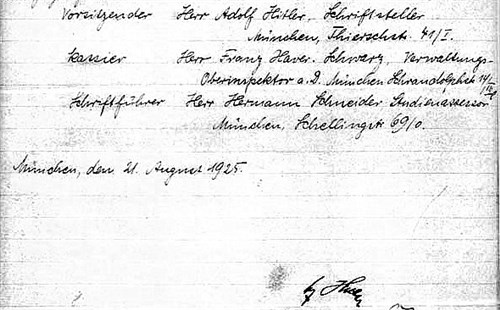 Vorsitzender Herr Adolf Hitler, Schriftsteller
München, Thierschstr. 41/I.
Kassier Herr Franz Xaver Schwarz, Verwaltungs-
Oberinspektor a. D. München
Schriftführer Herr Hermann Schneider Studienassessor
München, Schellingstr 69/0.
München, den 21. August 1925.